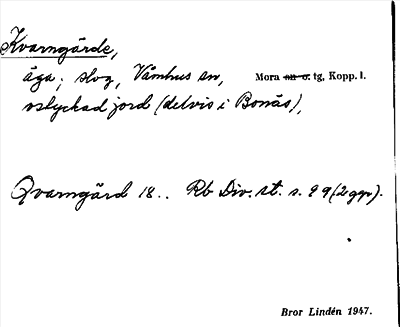 Kvarngärde,
äga; skog, Våmhus sn, Mora sn o. tg, Kopp. l.
ostyckad jord (delvis i Bonäs),
Qvarngärd 18.. Rb Div. st. s. 99 (2 ggr).
Bror Lindén 1947.